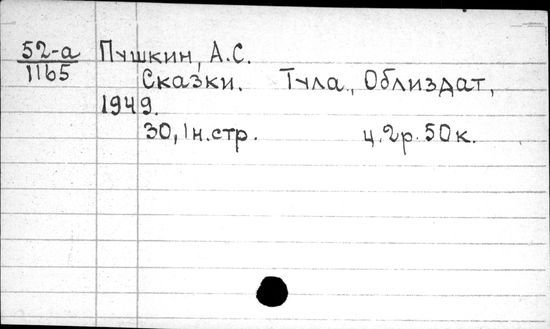 52-а Пушкин, А.С.
1165 Сказки. Тула, Облиздат,
1949.
30, 1н.стр. ц.2р.50к.